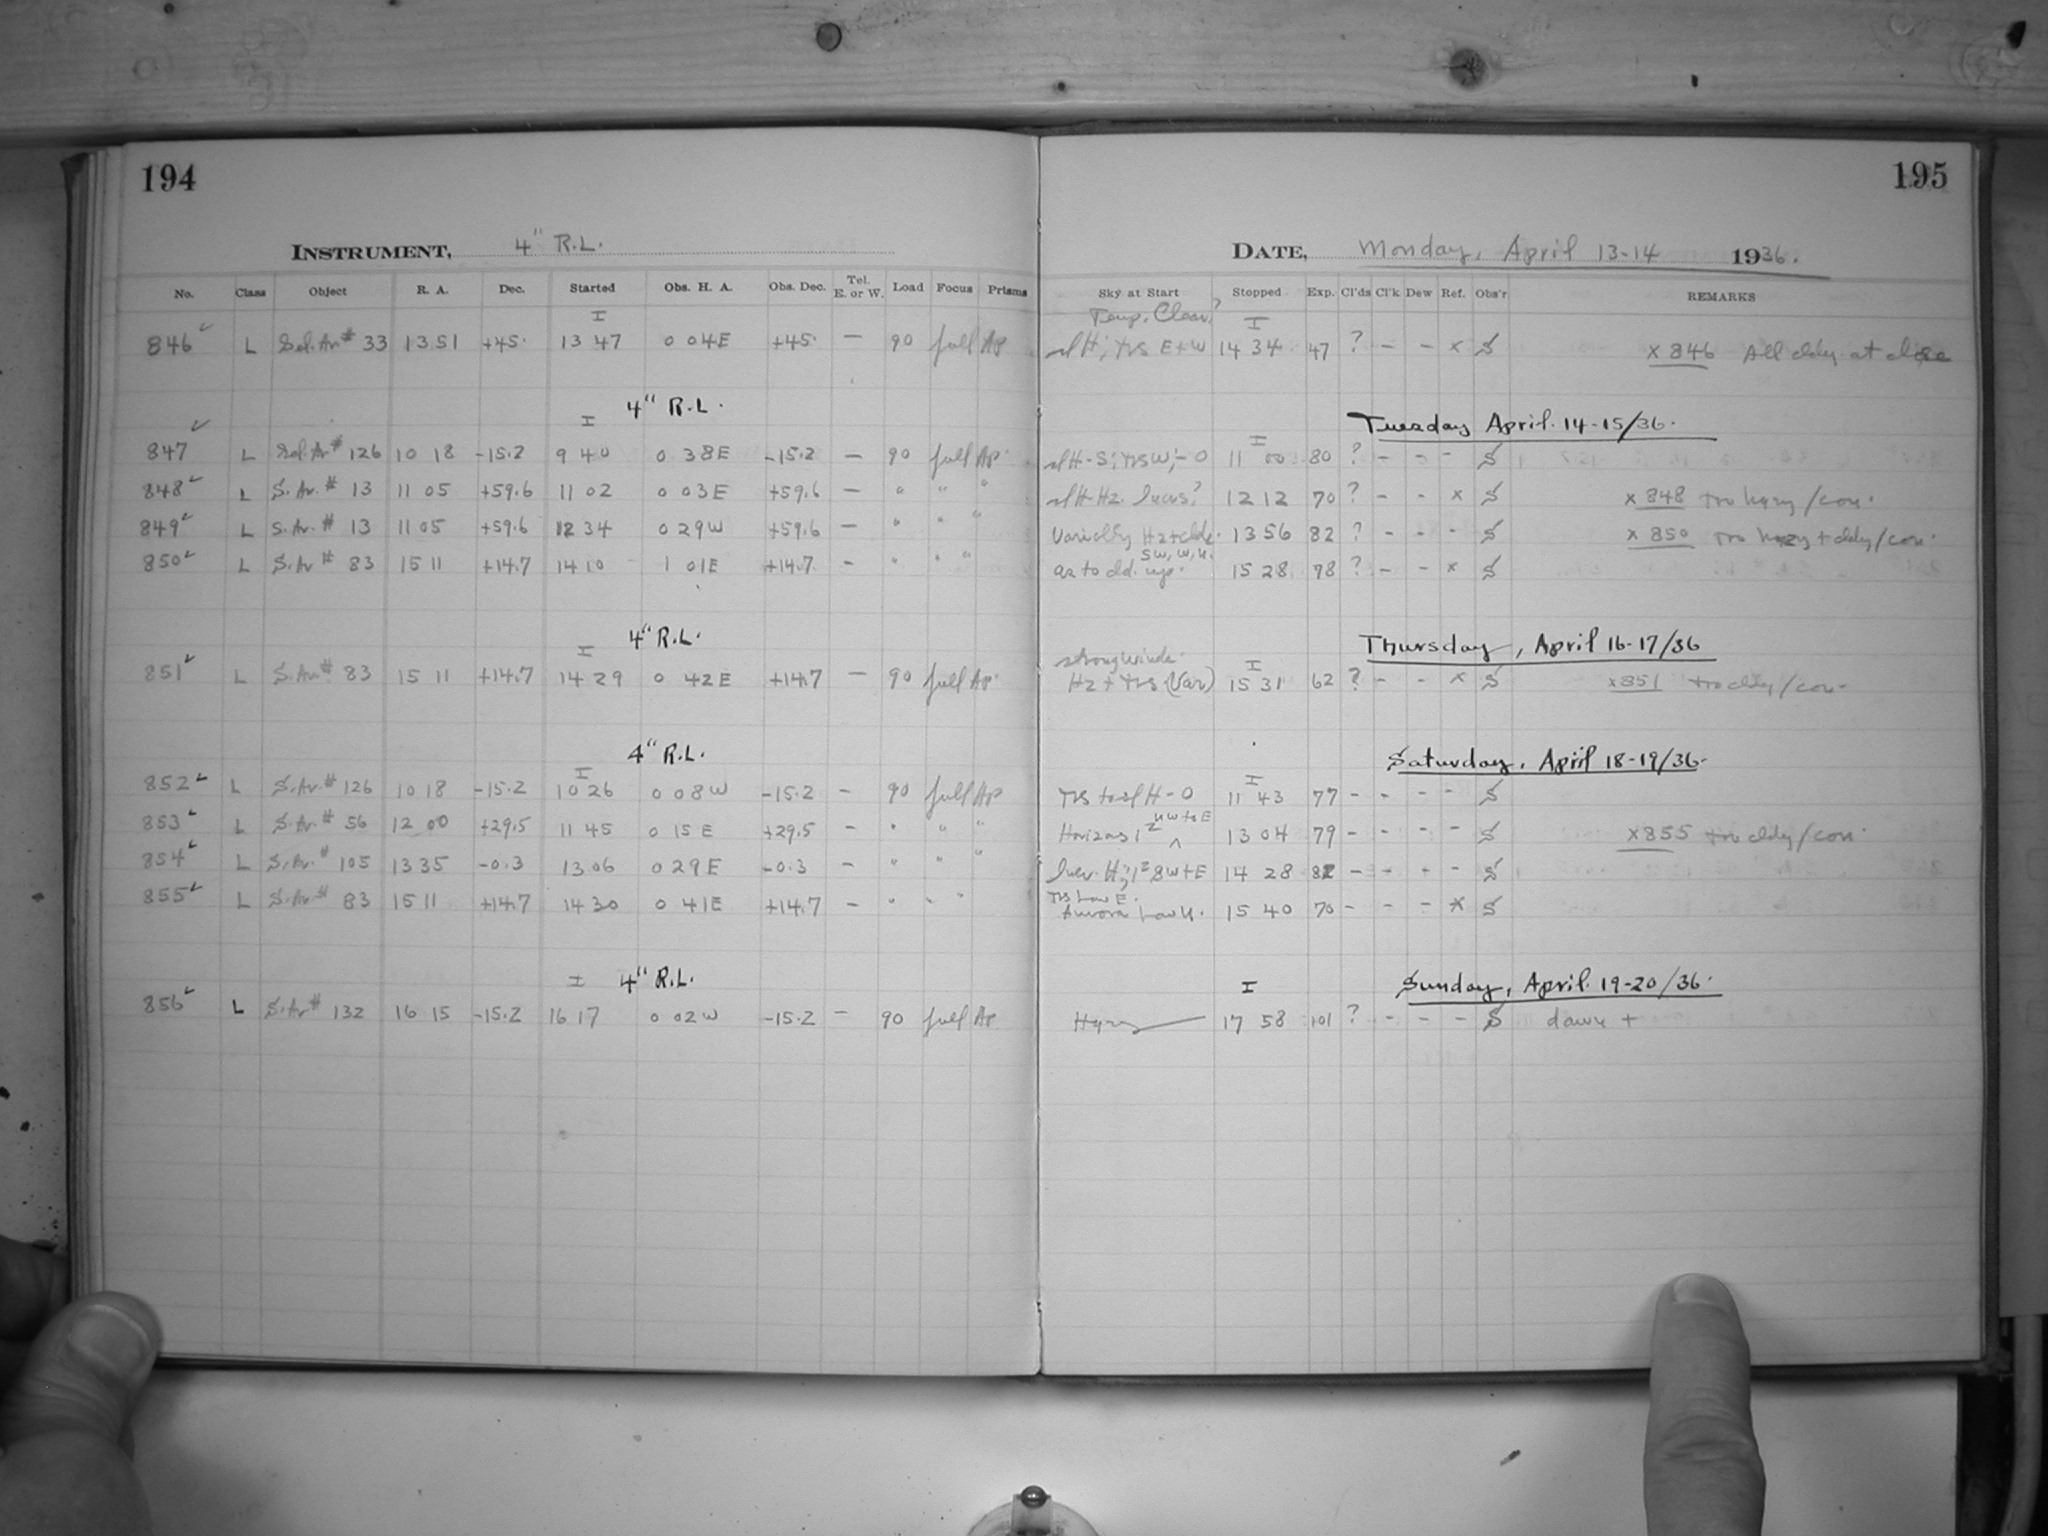 194
195
INSTRUMENT, 4" R.L.
DATE, Monday, April 13-14 1936.
No. Class Object R. A. Dec. Started Obs. H. A. Obs. Dec. Tel. E. or W. Load Focus Prisms Sky at Start Stopped Exp. Cl'ds Cl'k Dew Ref. Obs'r REMARKS
I Temp. Clear? I
846 ✓ L Sel. Ar # 33 13 51 +45. 13 47 0 04E +45. — 90 full Ap H; E+W 14 34 47 ? - - x S x 846 All cldy at close
4" R.L. Tuesday April. 14-15/36.
I I
847 ✓ L Sel. Ar # 126 10 18 -15.2 9 40 0 38E -15.2 — 90 full Ap. 11 00 80 ? - - - S
848 ✓ L S. Ar. # 13 11 05 +59.6 11 02 0 03E +59.6 — " " " 12 12 70 ? - - x S x 848 too hazy/con.
849 ✓ L S. Ar. # 13 11 05 +59.6 12 34 0 29W +59.6 — " " " Variably Hz+clds. 13 56 82 ? - - - S x 850 too hazy + cldy/con.
850 ✓ L S. Ar # 83 15 11 +14.7 14 10 1 01E +14.7 - " " " as to cld. SW, W, N. 15 28 78 ? - - x S
4" R.L. Thursday, April 16-17/36
I strong winds. I
851 ✓ L S. Ar # 83 15 11 +14.7 14 29 0 42E +14.7 — 90 full Ap. Hz + (Var) 15 31 62 ? - - x S x851 too cldy/con.
4" R.L. Saturday, April 18-19/36.
I I
852 ✓ L S. Ar. # 126 10 18 -15.2 10 26 0 08W -15.2 - 90 full Ap H-0 11 43 77 - - - - S
853 ✓ L S. Ar # 56 12 00 +29.5 11 45 0 15 E +29.5 - " " " NW to E 13 04 79 - - - - S x855 too cldy/con.
854 ✓ L S. Ar. # 105 13 35 -0.3 13 06 0 29E -0.3 - " " " SW+E 14 28 82 - - - - S
855 ✓ L S. Ar # 83 15 11 +14.7 14 30 0 41E +14.7 - " " " Low E. Aurora Low N. 15 40 70 - - - x S
I 4" R.L. I Sunday, April. 19-20/36.
856 ✓ L S. Ar # 132 16 15 -15.2 16 17 0 02W -15.2 - 90 full Ap Hazy 17 58 101 ? - - - S dawn +